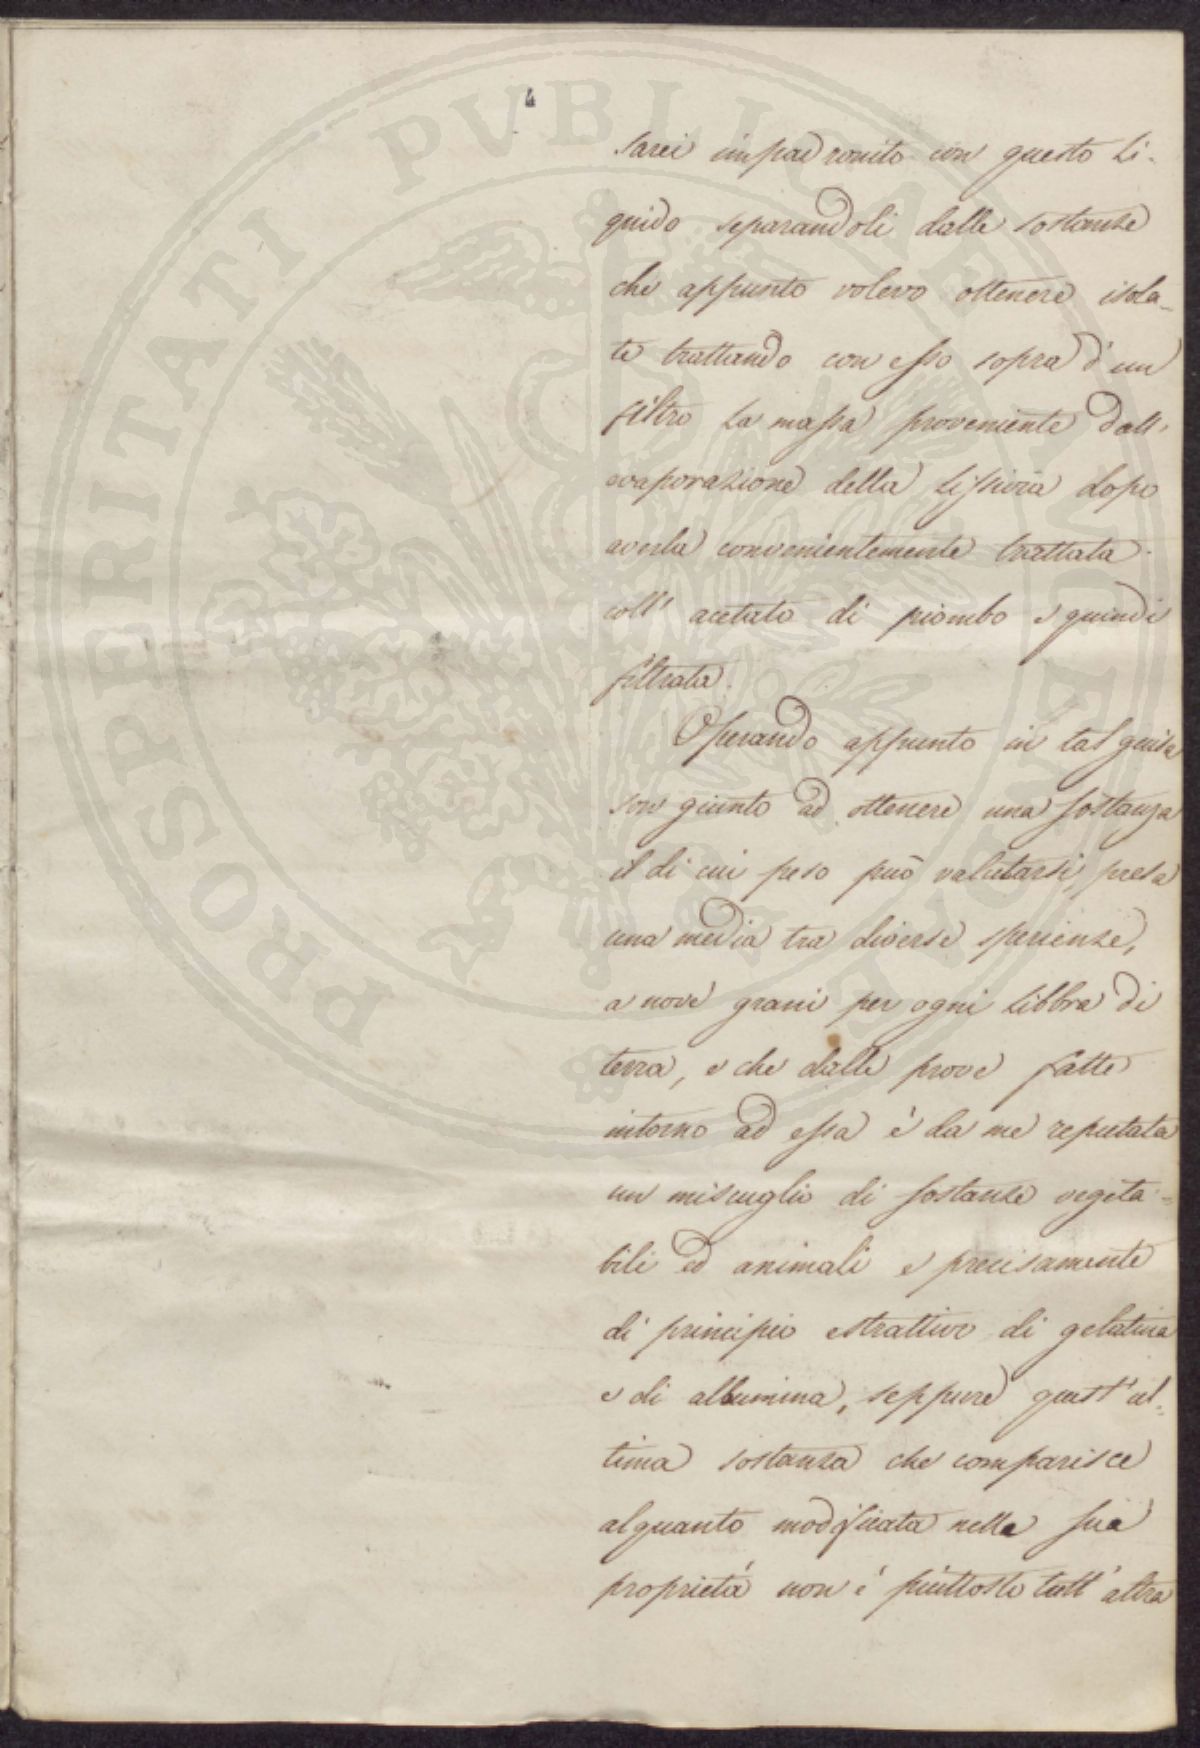 4
PROSPERITATI PUBLICAE AUGENDAE
sarei impadronito con questo li-
quido separandoli dalle sostanze
che appunto volevo ottenere isola-
te trattando con esso sopra d'un
filtro la massa proveniente dall'
evaporazione della lissivia dopo
averla convenientemente trattata
coll' acetato di piombo e quindi
filtrata.
Operando appunto in tal guisa
son giunto ad ottenere una sostanza
il di cui peso può valutarsi, presa
una media tra diverse sperienze,
a nove grani per ogni libbra di
terra, e che dalle prove fatte
intorno ad essa è da me reputata
un miscuglio di sostanze vegeta-
bili ed animali e precisamente
di principio estrattivo di gelatina
e di albumina, seppure quest' ul-
tima sostanza che comparisce
alquanto modificata nelle sue
proprietà non è piuttosto tutt' altra